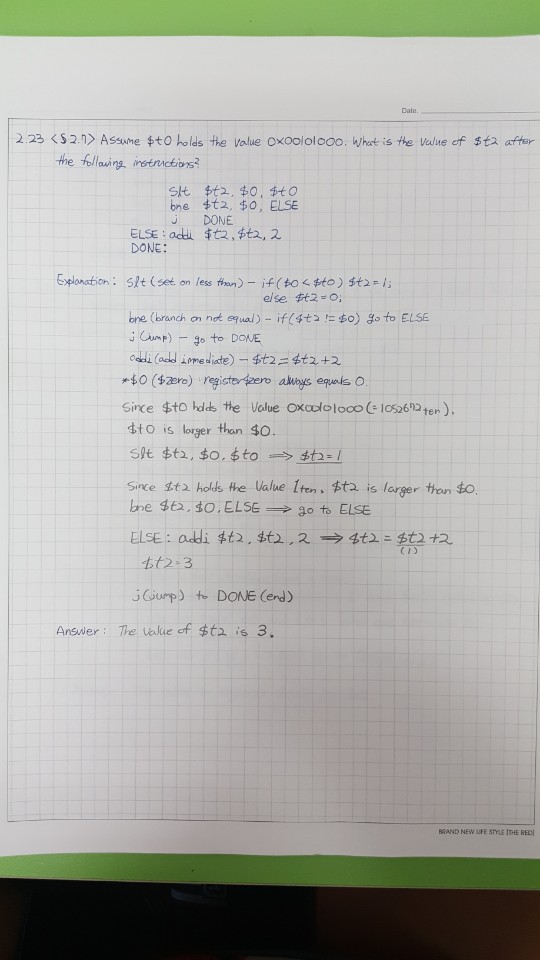 Date.
2.23 <§ 2.7> Assume $t0 holds the value 0x00101000. What is the value of $t2 after
the following instructions?
slt $t2, $0, $t0
bne $t2, $0, ELSE
j DONE
ELSE: addi $t2, $t2, 2
DONE:
Explanation: slt (set on less than) - if ($0 < $t0) $t2=1;
else $t2=0;
bne (branch on not equal) - if ($t2 != $0) go to ELSE
j (jump) - go to DONE
addi (add immediate) - $t2 = $t2+2
*$0 ($zero) register zero always equals 0.
Since $t0 holds the value 0x00101000 (=1052672 ten),
$t0 is larger than $0.
slt $t2, $0, $t0 ⟹ $t2=1
Since $t2 holds the value 1ten, $t2 is larger than $0.
bne $t2, $0, ELSE ⟹ go to ELSE
ELSE: addi $t2, $t2, 2 ⟹ $t2 = $t2 +2
(1)
$t2=3
j (jump) to DONE (end)
Answer: The value of $t2 is 3.
BRAND NEW LIFE STYLE [THE RED]